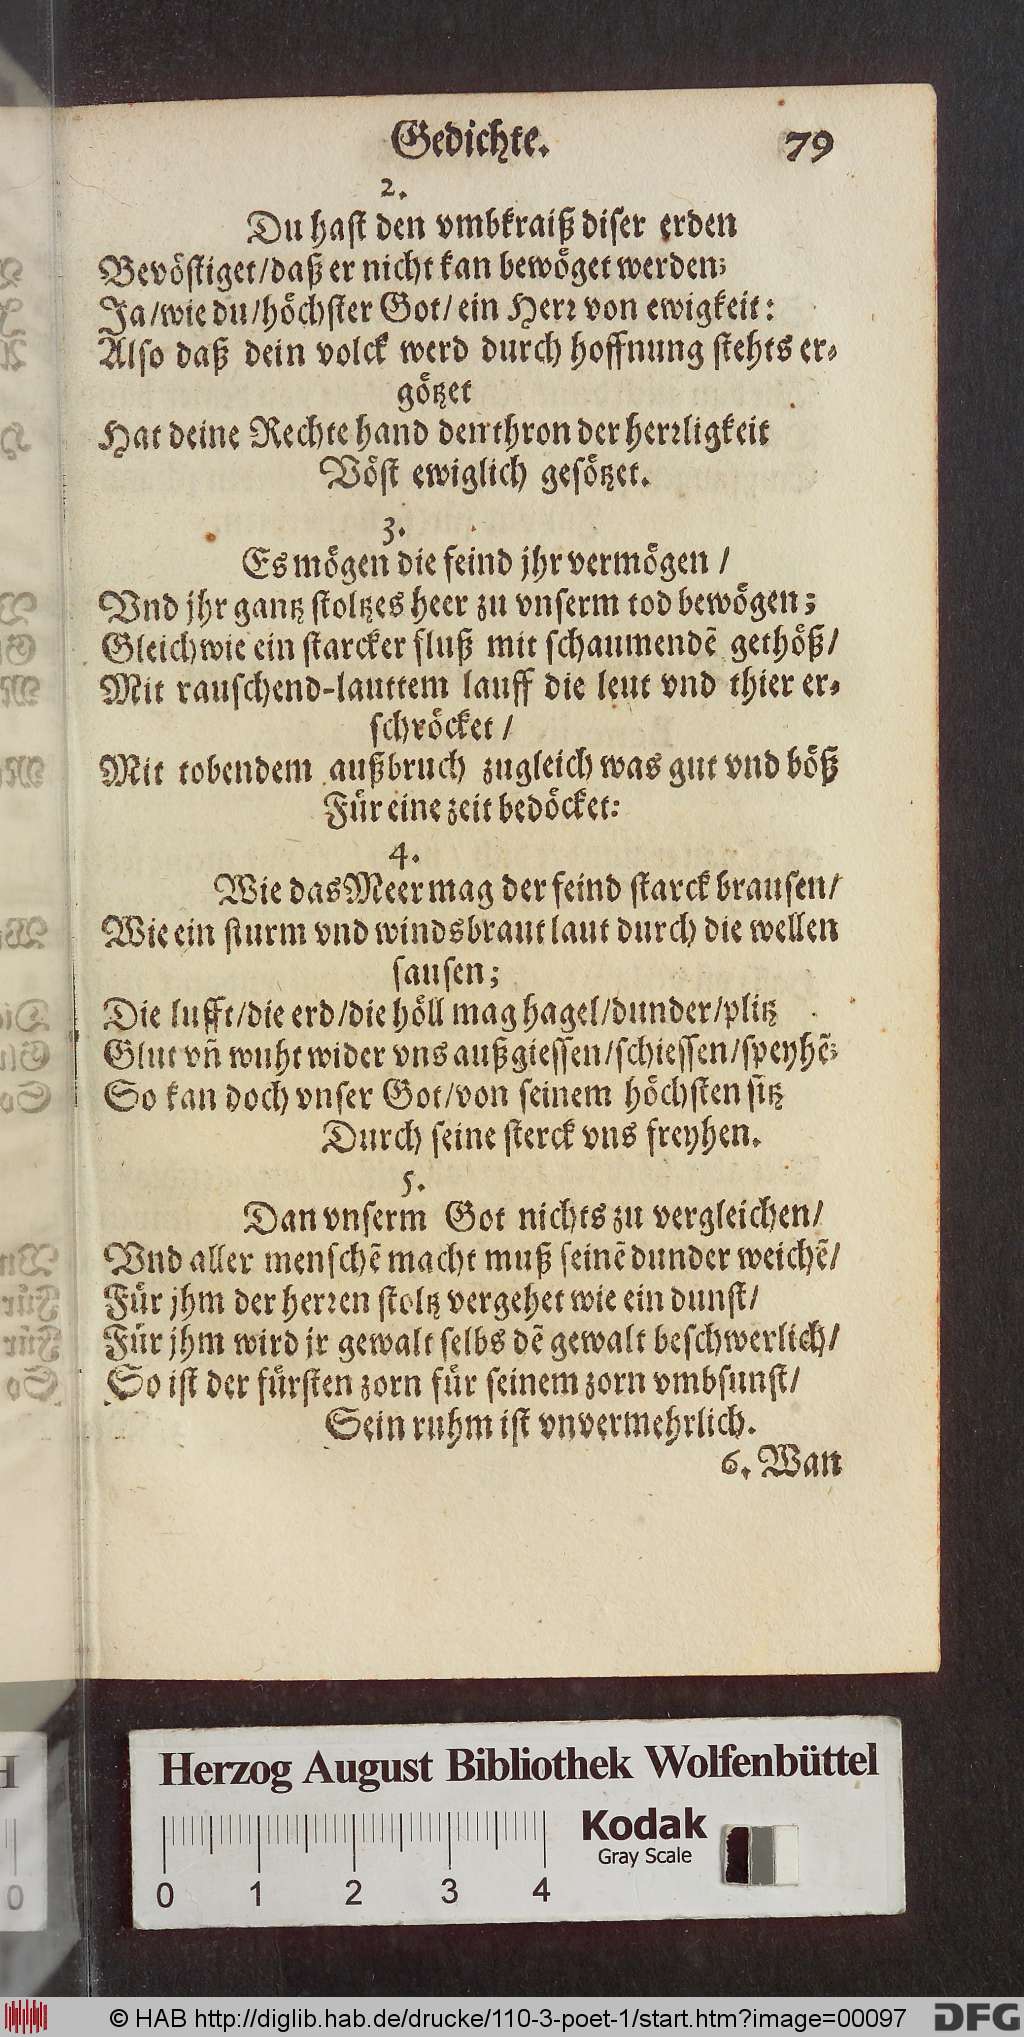 Gedichte. 79
2.
Du hast den vmbkraiß diser erden
Bevöstiget/daß er nicht kan bewöget werden;
Ja/wie du/höchster Got/ein Herr von ewigkeit:
Also daß dein volck werd durch hoffnung stehts er-
götzet
Hat deine Rechte hand den thron der herrligkeit
Vöst ewiglich gesötzet.
3.
Es mögen die feind jhr vermögen /
Vnd jhr gantz stoltzes heer zu vnserm tod bewögen;
Gleichwie ein starcker fluß mit schaumendẽ gethöß/
Mit rauschend-lauttem lauff die leut vnd thier er-
schröcket /
Mit tobendem außbruch zugleich was gut vnd böß
Für eine zeit bedöcket:
4.
Wie das Meer mag der feind starck brausen/
Wie ein sturm vnd windsbraut laut durch die wellen
sausen;
Die lufft/die erd/die höll mag hagel/dunder/plitz
Glut vñ wuht wider vns außgiessen/schiessen/speyhẽ;
So kan doch vnser Got/von seinem höchsten sitz
Durch seine sterck vns freyhen.
5.
Dan vnserm Got nichts zu vergleichen/
Vnd aller menschẽ macht muß seinẽ dunder weichẽ/
Für jhm der herren stoltz vergehet wie ein dunst/
Für jhm wird jr gewalt selbs dẽ gewalt beschwerlich/
So ist der fürsten zorn für seinem zorn vmbsunst/
Sein ruhm ist vnvermehrlich.
6. Wan
Herzog August Bibliothek Wolfenbüttel
Kodak
Gray Scale
0 1 2 3 4
© HAB http://diglib.hab.de/drucke/110-3-poet-1/start.htm?image=00097 DFG